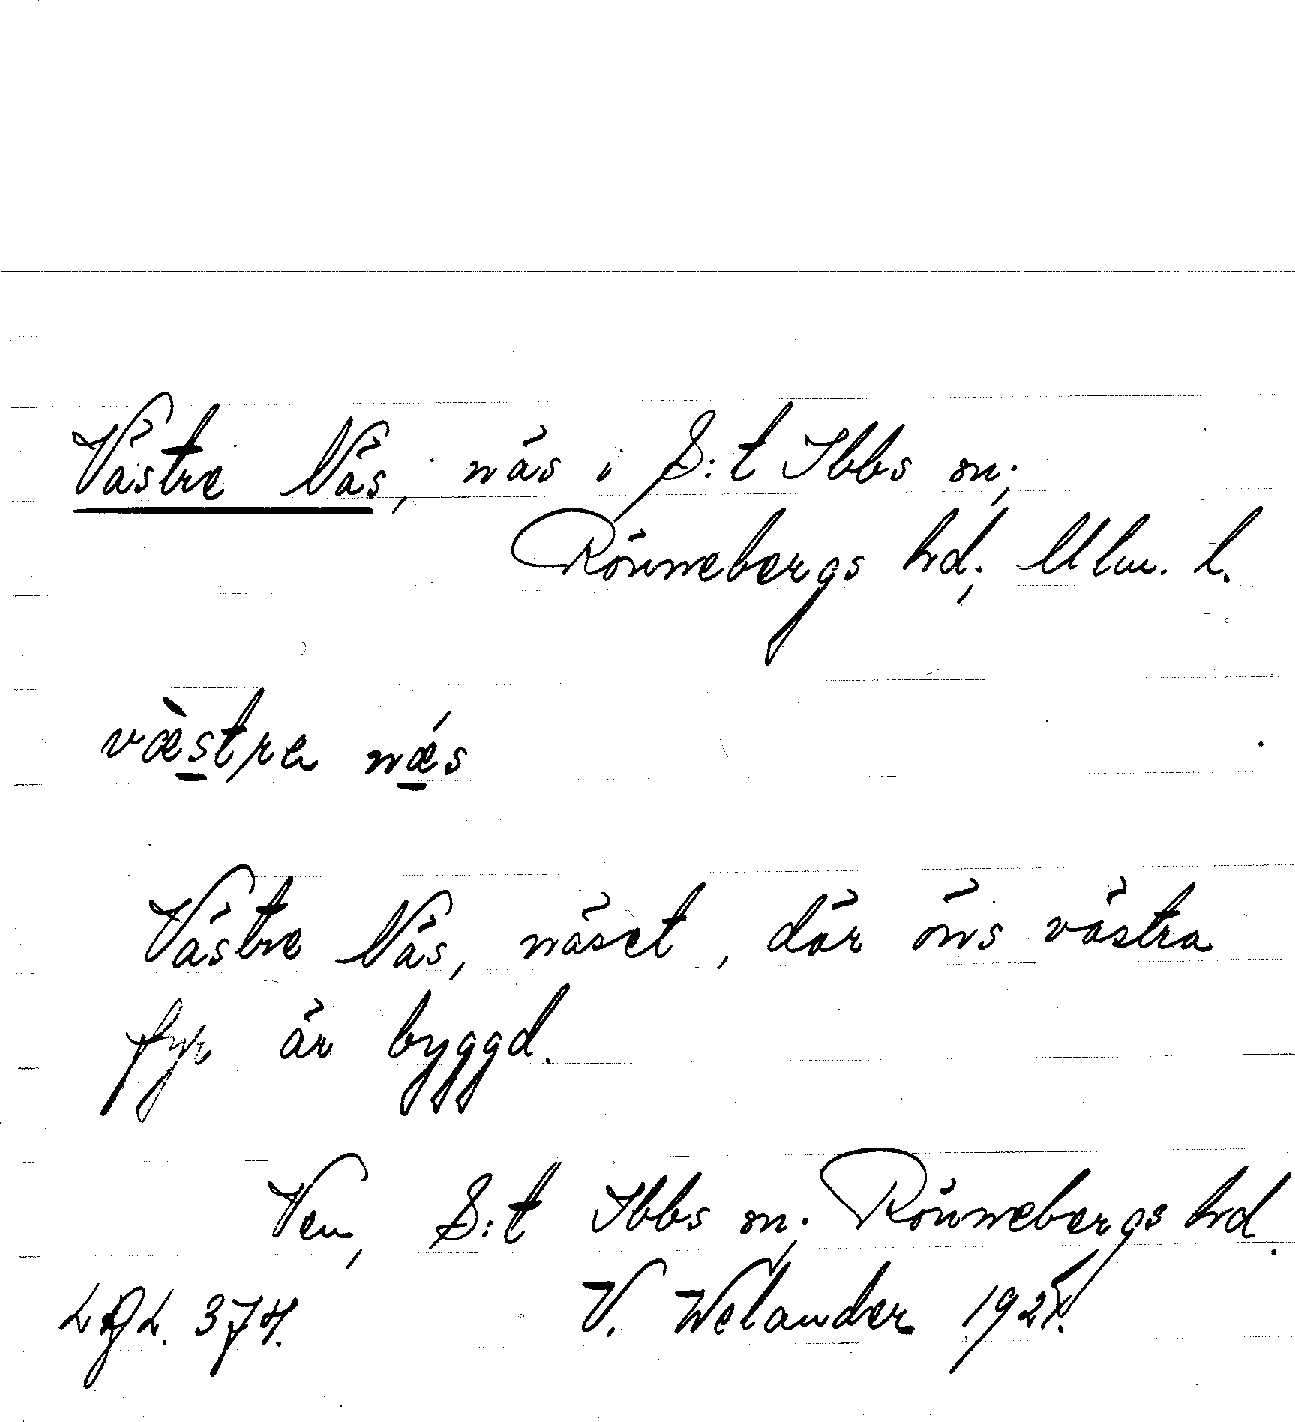 Västre Näs, näs i S:t Ibbs sn;
Rönnebergs hd; Mlm. l.
væ̀stre nǽs
Västre Näs, näset, där öns västra
fyr är byggd.
Ven, S:t Ibbs sn; Rönnebergs hd.
V. Welander